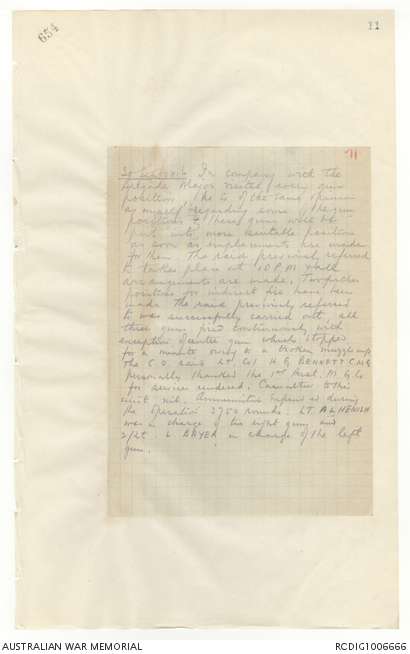 654
11
11
In company with the
Brigade Major visited every gun
position, he is of the same opinion
as myself regarding some of the gun
positions & these guns will be
put into more suitable positions
as soon as emplacements are made
for them. The raid previously referred
to takes place at 10 P.M. &
arrangements are made. Two
positions for indirect fire have been
made. The raid previously referred
to was successfully carried out all
three guns fired continuously with
exception of centre gun which stopped
for a minute owing to a broken muzzle cup
The C.O. said Lt Col H G BENNETT C.M.G
personally thanked the 1st Aust. M G Co
for service rendered. Casualties to the
unit nil. Ammunition Expended during
the operation 3750 rounds. LT. A L HEWISH
was in charge of the right gun and
2/Lt in charge of the left
gun.
AUSTRALIAN WAR MEMORIAL
RCDIG1006666